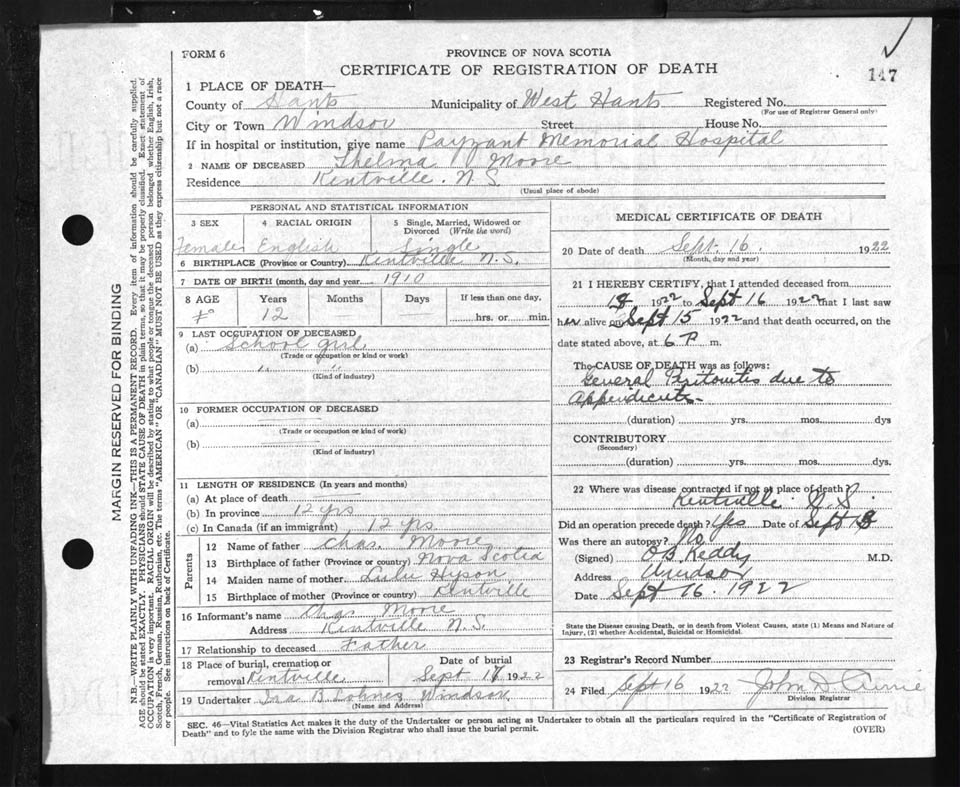 FORM 6
PROVINCE OF NOVA SCOTIA
CERTIFICATE OF REGISTRATION OF DEATH
147
1 PLACE OF DEATH—
County of Hants Municipality of West Hants Registered No.
(For use of Registrar General only)
City or Town Windsor Street House No.
If in hospital or institution, give name Payzant Memorial Hospital
2 NAME OF DECEASED Thelma Moore
Residence Kentville. N.S.
(Usual place of abode)
PERSONAL AND STATISTICAL INFORMATION
3 SEX 4 RACIAL ORIGIN 5 Single, Married, Widowed or Divorced (Write the word)
Female English Single
6 BIRTHPLACE (Province or Country) Kentville N.S.
7 DATE OF BIRTH (month, day and year) 1910
8 AGE Years Months Days If less than one day,
12 hrs. or min.
9 LAST OCCUPATION OF DECEASED
(a) School girl
(Trade or occupation or kind or work)
(b) " "
(Kind of industry)
10 FORMER OCCUPATION OF DECEASED
(a)
(Trade or occupation or kind of work)
(b)
(Kind of industry)
11 LENGTH OF RESIDENCE (In years and months)
(a) At place of death
(b) In province 12 yrs
(c) In Canada (if an immigrant) 12 yrs
Parents
12 Name of father Chas. Moore
13 Birthplace of father (Province or country) Nova Scotia
14 Maiden name of mother Lulu Hyson
15 Birthplace of mother (Province or country) Kentville
16 Informant's name Chas Moore
Address Kentville N.S.
17 Relationship to deceased Father
18 Place of burial, cremation or removal Kentville
Date of burial Sept 17 1922
19 Undertaker Ira B. Lohnes Windsor
(Name and Address)
MEDICAL CERTIFICATE OF DEATH
20 Date of death Sept. 16. 1922
(Month, day and year)
21 I HEREBY CERTIFY, that I attended deceased from
1922 to Sept 16 1922 that I last saw
her alive on Sept 15 1922 and that death occurred, on the
date stated above, at 6 P m.
The CAUSE OF DEATH was as follows:
General Peritonitis due to
Appendicitis
(duration) yrs. mos. dys
CONTRIBUTORY
(Secondary)
(duration) yrs. mos. dys.
22 Where was disease contracted if not at place of death?
Kentville N.S.
Did an operation precede death? Yes Date of Sept
Was there an autopsy? No
(Signed) O B Keddy M.D.
Address Windsor
Date Sept 16. 1922
State the Disease causing Death, or in death from Violent Causes, state (1) Means and Nature of
Injury, (2) whether Accidental, Suicidal or Homicidal.
23 Registrar's Record Number
24 Filed Sept 16 1922 John D Currie
Division Registrar
SEC. 46—Vital Statistics Act makes it the duty of the Undertaker or person acting as Undertaker to obtain all the particulars required in the "Certificate of Registration of
Death" and to fyle the same with the Division Registrar who shall issue the burial permit.
(OVER)
MARGIN RESERVED FOR BINDING
N.B.—WRITE PLAINLY WITH UNFADING INK—THIS IS A PERMANENT RECORD. Every item of information should be carefully supplied.
AGE should be stated EXACTLY. PHYSICIANS should STATE CAUSE OF DEATH in plain terms, so that it may be properly classified. Exact statement of
OCCUPATION is very important. RACIAL ORIGIN will be described by stating to what people or tongue the deceased person belonged whether English, Irish,
Scotch, French, German, Russian, Ruthenian, etc. The terms "AMERICAN" OR "CANADIAN" MUST NOT BE USED as they express citizenship but not a race
or people. See instructions on back of Certificate.